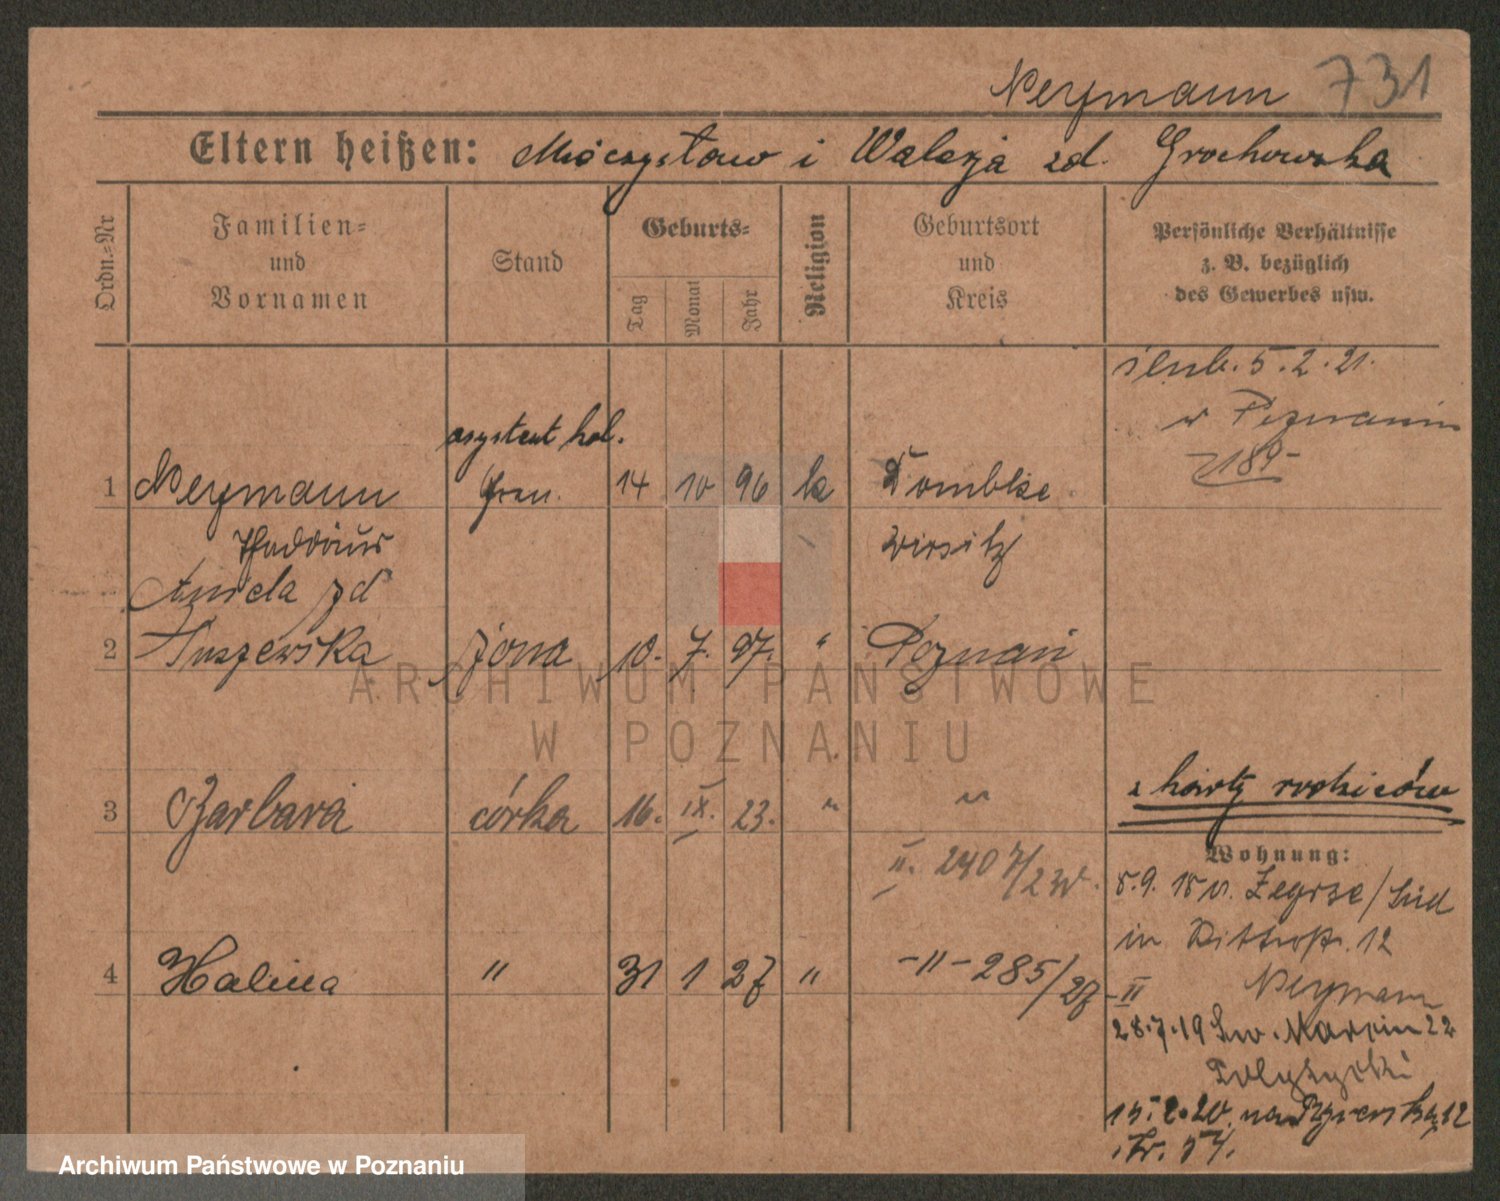 Neymann 731
Eltern heißen: Mieczysław i Walerja zd. Grochowska
Ordn.=Nr
Familien=
und
Vornamen
Stand
Geburts=
Tag
Monat
Jahr
Religion
Geburtsort
und
Kreis
Persönliche Verhältnisse
z. B. bezüglich
des Gewerbes usw.
ślub. 5.2.21.
w Poznaniu
189
asystent kol.
1 Neymann 14 10 96 k Dombke
Thaddäus Wirsitz
Aniela zd
2 Tuszewska żona 10. 7. 97. " Poznań
ARCHIWUM PAŃSTWOWE
W POZNANIU
3 Barbara córka 16. IX. 23. " "
z karty rodziców
II. 2407/23.
Wohnung:
5.9. 18 v. Zegrze/Süd
in Ritterstr. 12
4 Halina " 31 1 27 " -II- 285/27
II Neymann
28.7.19 Św. Marcin 22
15.2.20. na 12
Archiwum Państwowe w Poznaniu